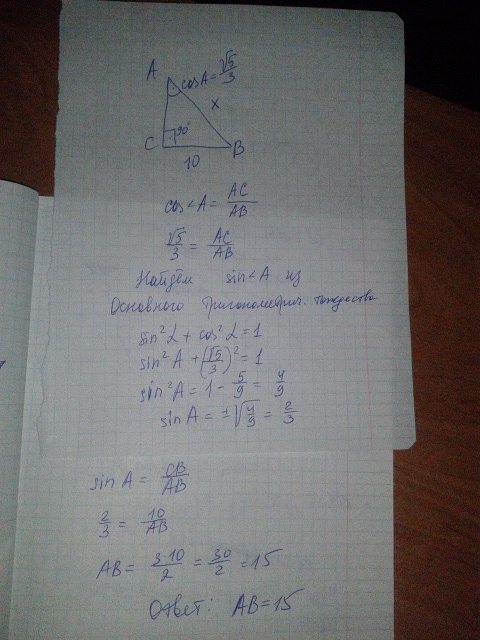 A
cosA = √5/3
x
C 90° B
10
cos∠A = AC/AB
√5/3 = AC/AB
Найдём sin∠A из
Основного тригонометрич. тождества
sin²α + cos²α = 1
sin²A + (√5/3)² = 1
sin²A = 1 - 5/9 = 4/9
sin A = ±√4/9 = 2/3
sin A = CB/AB
2/3 = 10/AB
AB = 3·10/2 = 30/2 = 15
Ответ: AB = 15